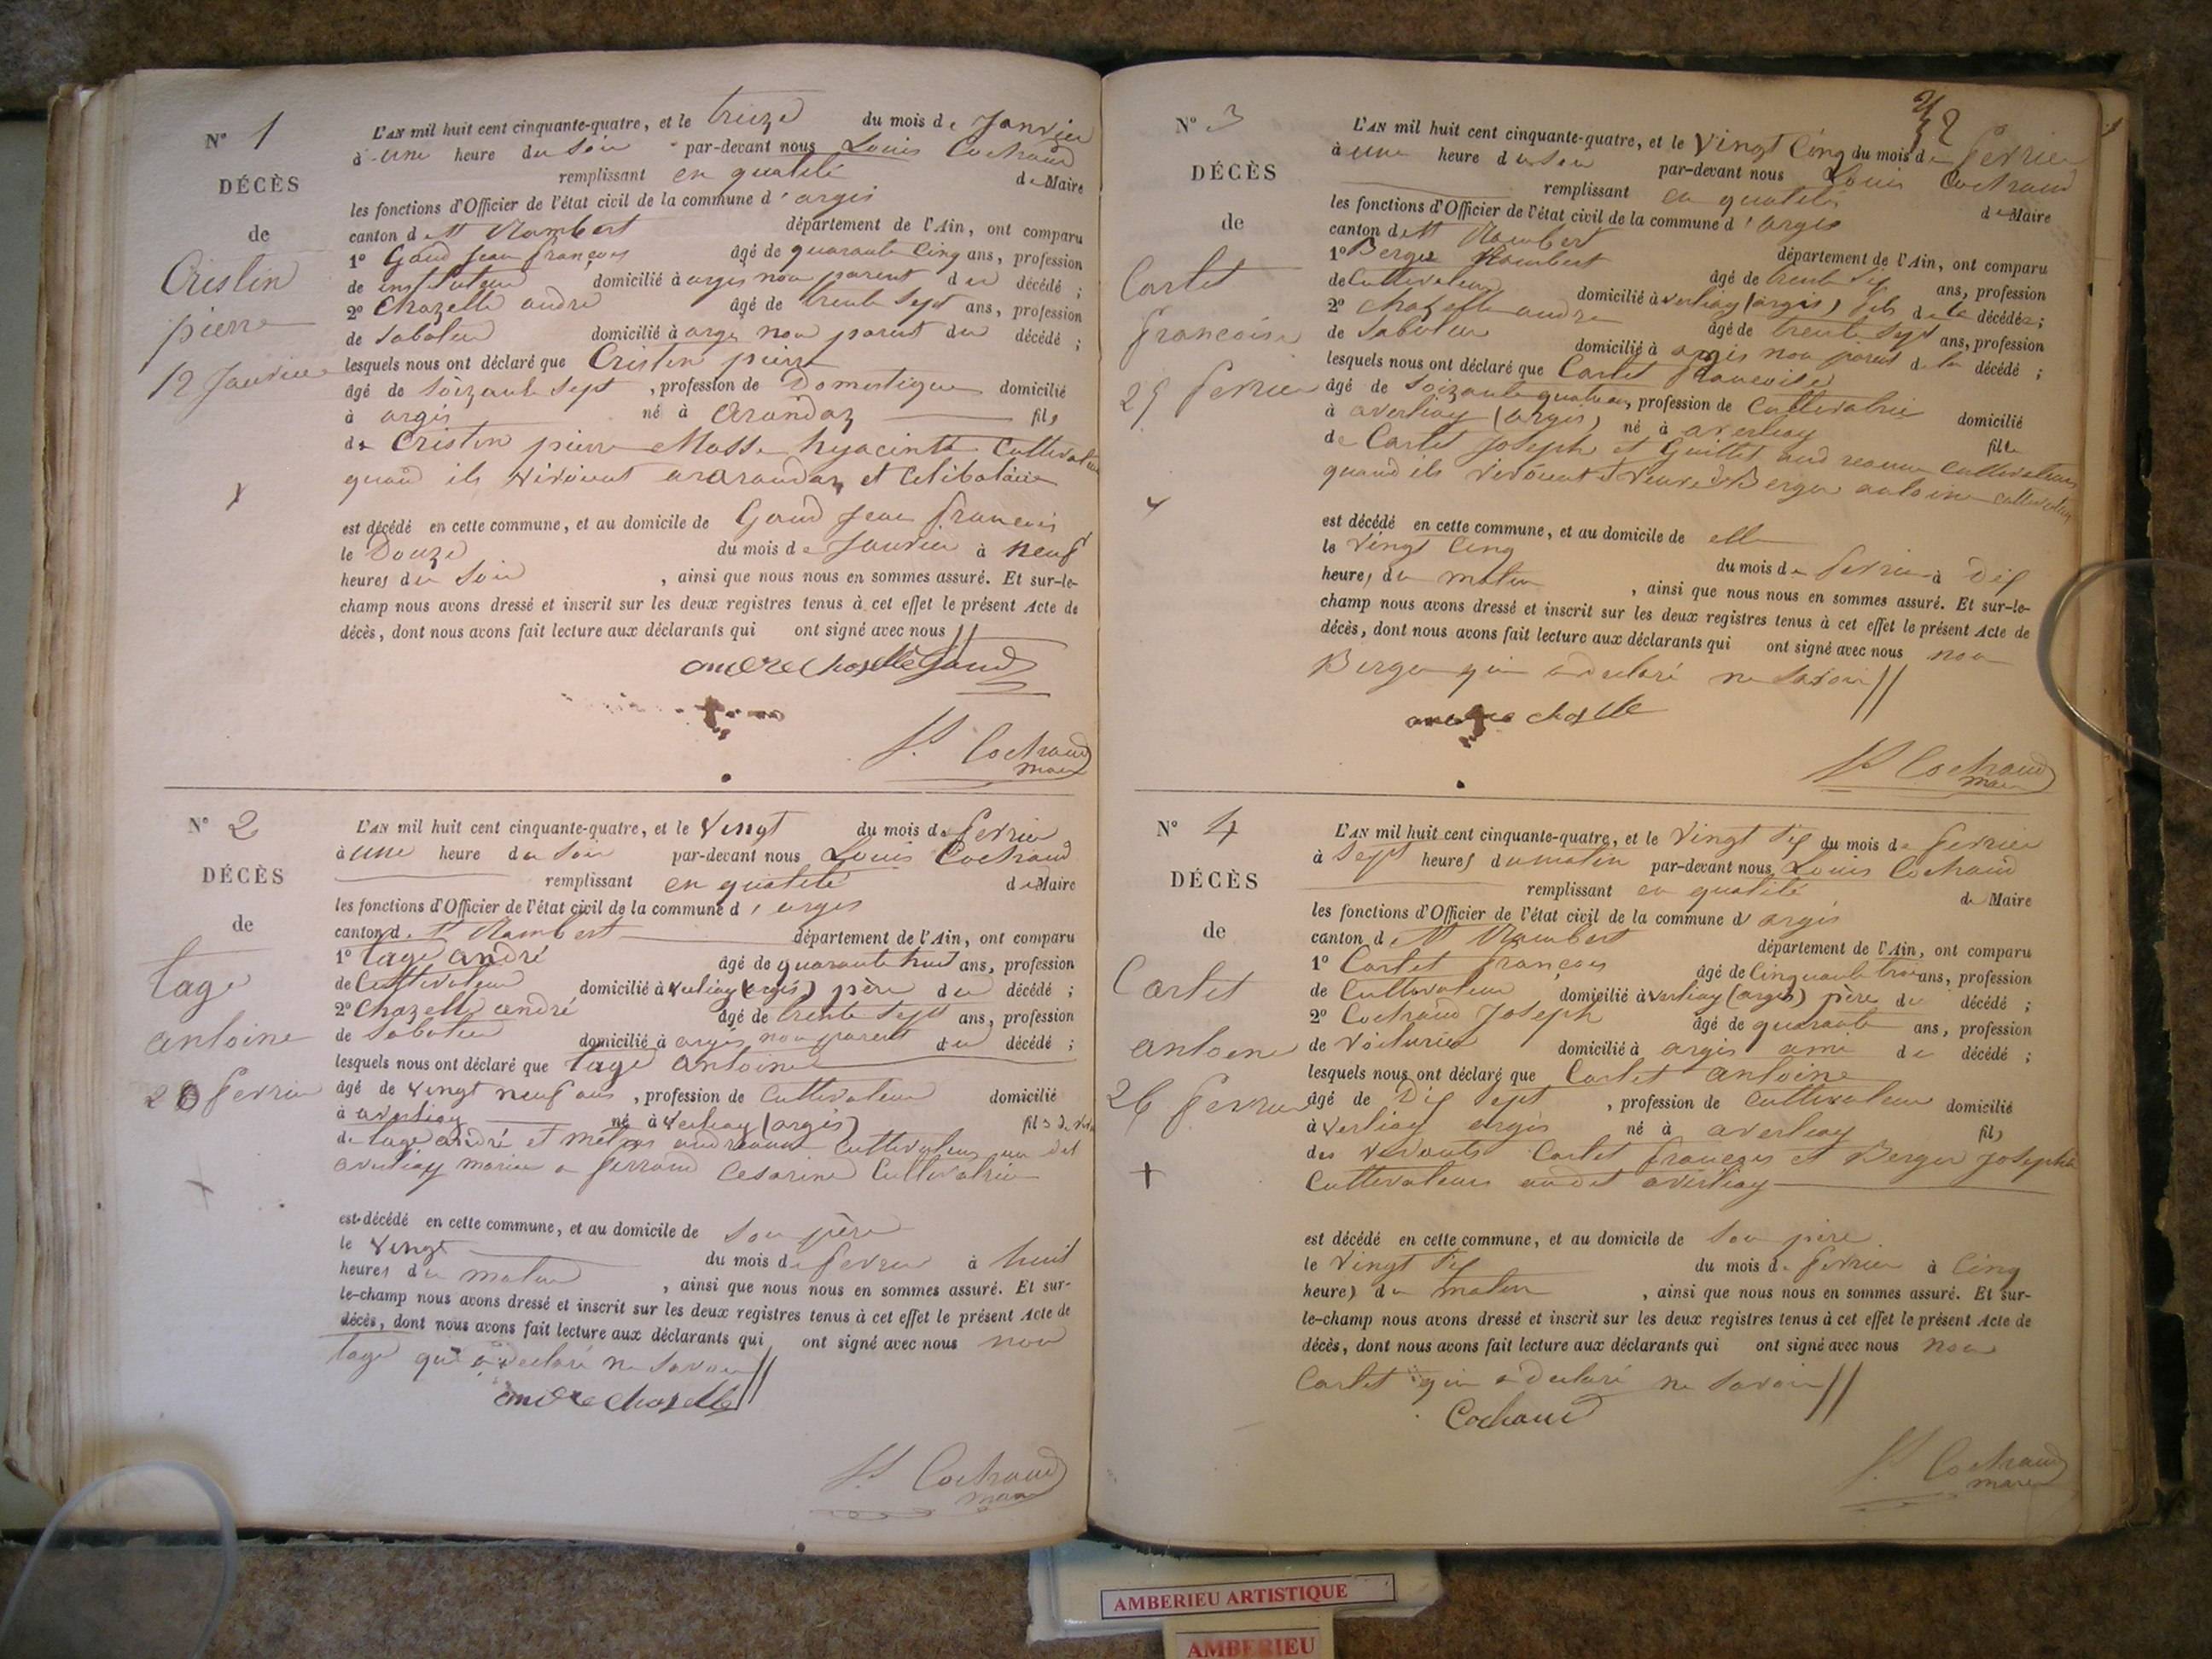 N° 1
DÉCÈS
de
Cristin
pierre
12 Janvier
L'AN mil huit cent cinquante-quatre, et le treize du mois de Janvier
à une heure du Soir par-devant nous Louis Cochaud
remplissant en qualité de Maire
les fonctions d'Officier de l'état civil de la commune d'argis
canton de St Rambert département de l'Ain, ont comparu
1° Gaud Jean françois âgé de quarante Cinq ans, profession
de instituteur domicilié à argis non parent du décédé ;
2° Chazelle andré âgé de trente Sept ans, profession
de Saboteur domicilié à argis non parent du décédé ;
lesquels nous ont déclaré que Cristin pierre
âgé de Soizante Sept , profession de Domestique domicilié
à argis né à Arandaz fils
de Cristin pierre Hyacinte Cultivateurs
quand ils vivoient et Célibataire
est décédé en cette commune, et au domicile de Gaud Jean françois
le Douze du mois de Janvier à neuf
heures du Soir , ainsi que nous nous en sommes assuré. Et sur-le-
champ nous avons dressé et inscrit sur les deux registres tenus à cet effet le présent Acte de
décès, dont nous avons fait lecture aux déclarants qui ont signé avec nous //
andre chazelle Gaud
Ls Cochaud
maire
N° 2
DÉCÈS
de
tage
antoine
20 fevrier
L'AN mil huit cent cinquante-quatre, et le Vingt du mois de fevrier
à une heure du Soir par-devant nous Louis Cochaud
remplissant en qualité de Maire
les fonctions d'Officier de l'état civil de la commune d'argis
canton de St Rambert département de l'Ain, ont comparu
1° tage andré âgé de quarante huit ans, profession
de Cultivateur domicilié à Verliay (argis) père du décédé ;
2° Chazelle andré âgé de trente Sept ans, profession
de Saboteur domicilié à argis non parent du décédé ;
lesquels nous ont déclaré que tage antoine
âgé de vingt neuf ans , profession de Cultivateur domicilié
à averliay né à Verliay (argis) fils
de tage andré et Cultivateurs
averliay marié a ferrand Cesarine Cultivatrice
est décédé en cette commune, et au domicile de Son père
le Vingt du mois de fevrier à huit
heures du matin , ainsi que nous nous en sommes assuré. Et sur-
le-champ nous avons dressé et inscrit sur les deux registres tenus à cet effet le présent Acte de
décès, dont nous avons fait lecture aux déclarants qui ont signé avec nous non
tage qui a declaré ne Savoir //
andre chazelle
Ls Cochaud
maire
N° 3
DÉCÈS
de
Cartet
francoise
25 fevrier
L'AN mil huit cent cinquante-quatre, et le Vingt Cinq du mois de fevrier
à une heure du Soir par-devant nous Louis Cochaud
remplissant en qualité de Maire
les fonctions d'Officier de l'état civil de la commune d'argis
canton de St Rambert département de l'Ain, ont comparu
1° Berger Rambert âgé de trente Six ans, profession
de Cultivateur domicilié à verliay (argis) fils de la décédée ;
2° Chazelle andre âgé de trente Sept ans, profession
de Saboteur domicilié à argis non parent de la décédé ;
lesquels nous ont déclaré que Cartet francoise
âgé de Soizante quatre , profession de Cultivatrice domicilié
à averliay (argis) né à averliay fille
de Cartet Joseph et Guillet Cultivateurs
quand ils vivoient et Veuve de Berger antoine cultivateur
est décédé en cette commune, et au domicile de elle
le Vingt Cinq du mois de fevrier à Dix
heures du matin , ainsi que nous nous en sommes assuré. Et sur-le-
champ nous avons dressé et inscrit sur les deux registres tenus à cet effet le présent Acte de
décès, dont nous avons fait lecture aux déclarants qui ont signé avec nous non
Berger qui a declaré ne Savoir //
andre chazelle
Ls Cochaud
maire
N° 4
DÉCÈS
de
Cartet
antoine
26 fevrier
L'AN mil huit cent cinquante-quatre, et le Vingt Six du mois de fevrier
à Sept heures du matin par-devant nous Louis Cochaud
remplissant en qualité de Maire
les fonctions d'Officier de l'état civil de la commune d'argis
canton de St Rambert département de l'Ain, ont comparu
1° Cartet françois âgé de Cinquante trois ans, profession
de Cultivateur domicilié à verliay (argis) père du décédé ;
2° Cochaud Joseph âgé de quarante ans, profession
de Voiturier domicilié à argis ami du décédé ;
lesquels nous ont déclaré que Cartet antoine
âgé de Dix Sept , profession de Cultivateur domicilié
à Verliay argis né à averliay fils
des vivants Cartet françois et Berger Josephte
Cultivateurs audit averliay
est décédé en cette commune, et au domicile de Son père
le Vingt Six du mois de fevrier à Cinq
heures du matin , ainsi que nous nous en sommes assuré. Et sur-
le-champ nous avons dressé et inscrit sur les deux registres tenus à cet effet le présent Acte de
décès, dont nous avons fait lecture aux déclarants qui ont signé avec nous non
Cartet qui a declaré ne Savoir //
Cochaud
Ls Cochaud
maire
AMBERIEU ARTISTIQUE
AMBERIEU